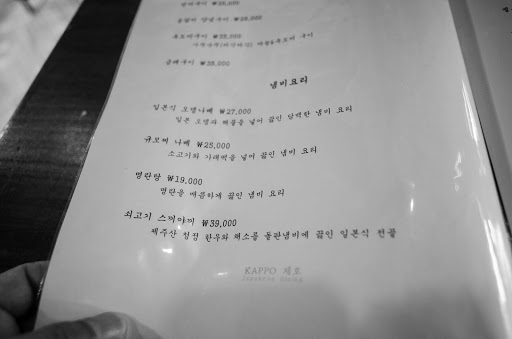 ₩38,000
₩28,000
₩35,000
₩38,000
냄비요리
일본식 오뎅나베 ₩27,000
일본 오뎅과 해물을 넣어 끓인 담백한 냄비 요리
규모찌 나베 ₩28,000
소고기와 가래떡을 넣어 끓인 냄비 요리
명란탕 ₩19,000
명란을 매콤하게 끓인 냄비 요리
쇠고기 스끼야끼 ₩39,000
제주산 청정 한우와 채소를 돌판냄비에 끓인 일본식 전골
KAPPO 제호
Japanese Dining